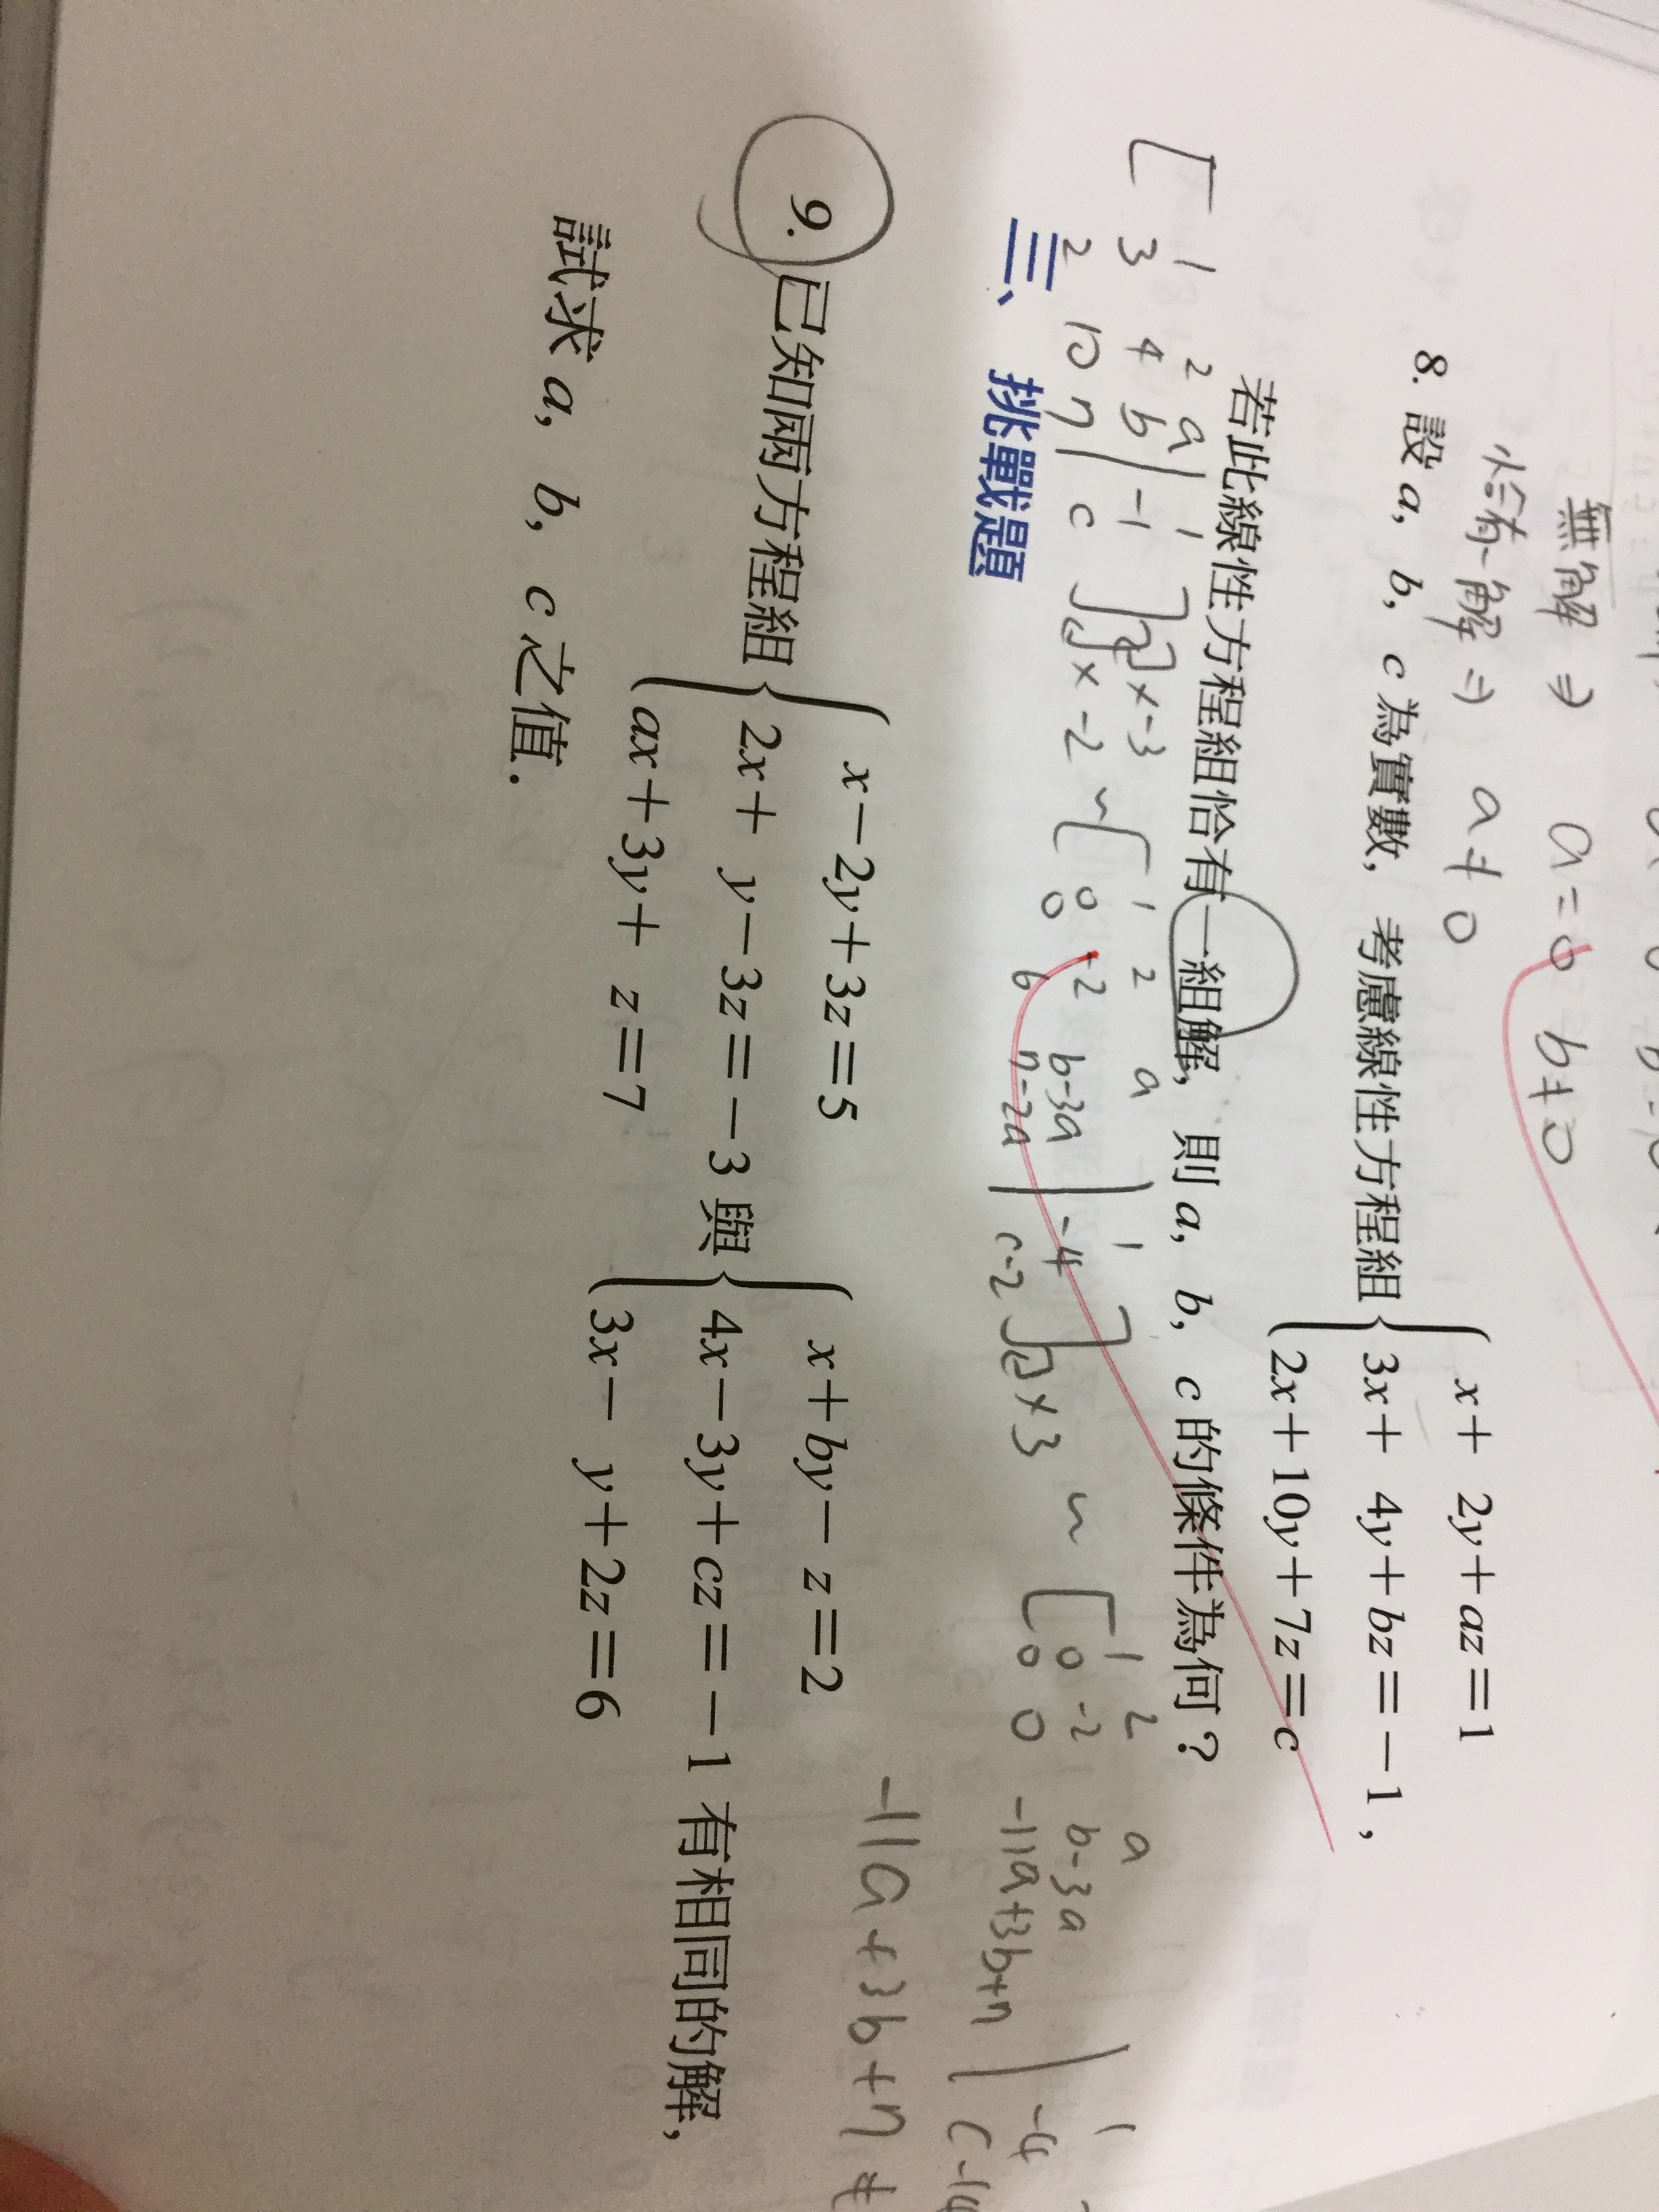 無解 ⇒ a=0 b≠0
恰有一解 ⇒ a≠0
8. 設 a, b, c 為實數, 考慮線性方程組
x+ 2y+az=1
3x+ 4y+bz=-1,
2x+10y+7z=c
若此線性方程組恰有一組解, 則 a, b, c 的條件為何?
1 2 a | 1
3 4 b | -1 ×-3
2 10 7 | c ×-2
~
1 2 a | 1
0 -2 b-3a | -4
0 6 7-2a | c-2 ×3
~
1 2 a | 1
0 -2 b-3a | -4
0 0 -11a+3b+7 | c-14
-11a+3b+7≠
三、挑戰題
9. 已知兩方程組
x-2y+3z=5
2x+ y-3z=-3
ax+3y+ z=7
與
x+by- z=2
4x-3y+cz=-1
3x- y+2z=6
有相同的解,
試求 a, b, c 之值.